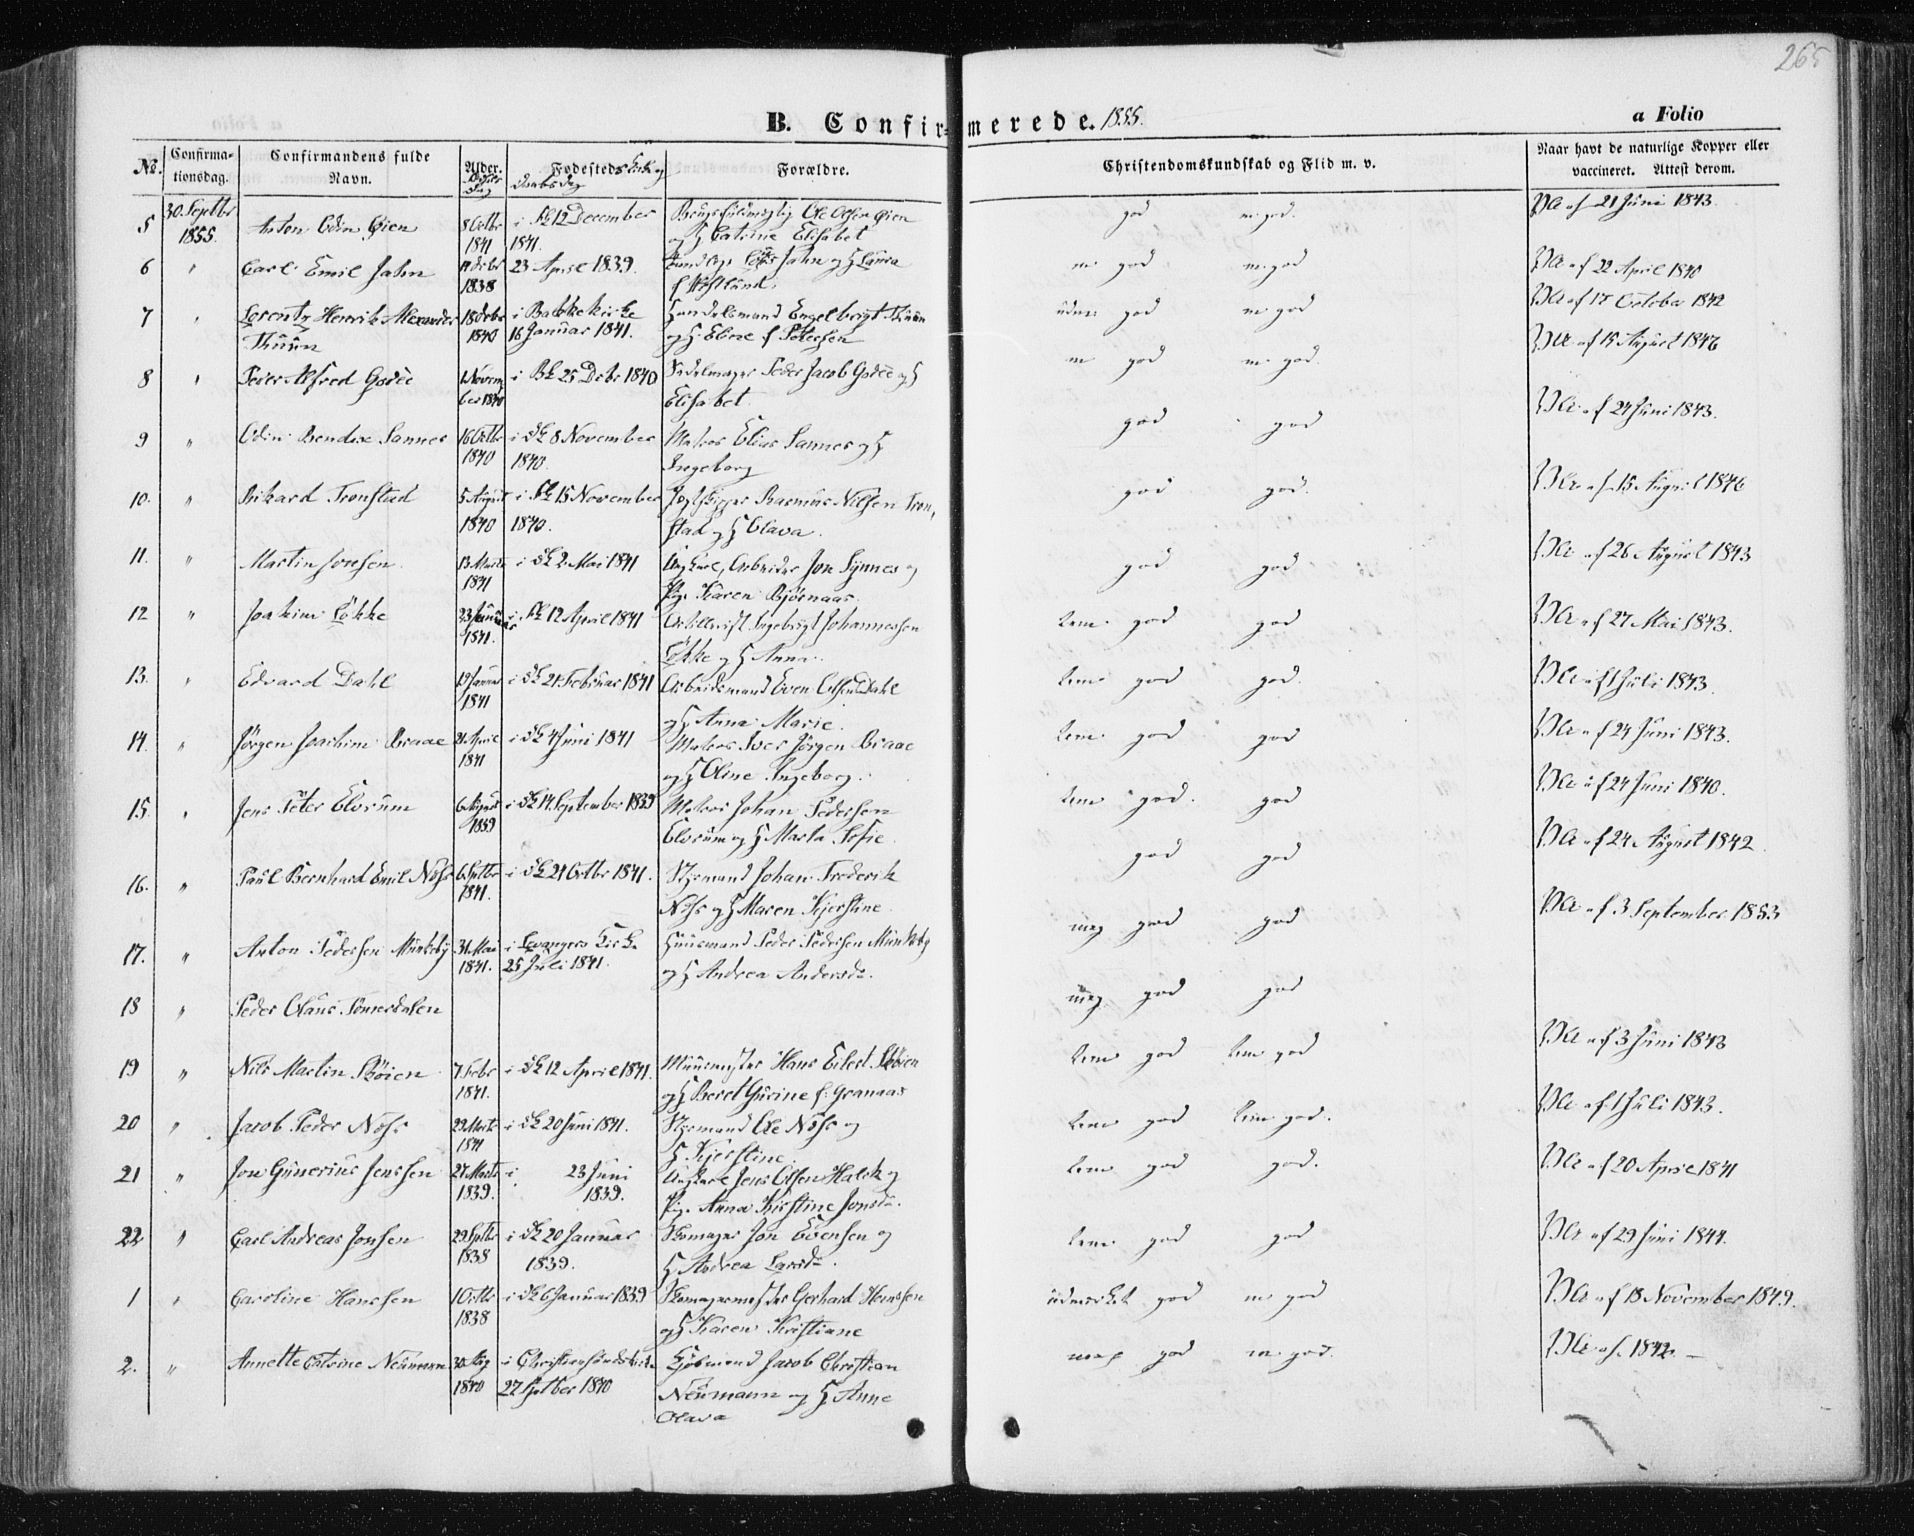 265
B. Confirmerede. 1855.
a Folio
No. Confirmationsdag. Confirmandens fulde Navn. Alder. Fødesteds Forældre. Christendomskundskab og Flid m. v. Naar havt de naturlige Kopper eller vaccineret. Attest derom.
5 30. Septbr 1855. Anton Odin Øien 8 Octbr 1841 i 12 December 1841. Ole Olsen Øien og H Catrine Elisabet god m. god. Vac. af 21 Juni 1843.
6 " Carl Emil Jahn 1838 23 April 1839. Jahn og H Laura f. m. god m. god Vac. af 22 April 1840
7 " Lorentz Henrik Alexander Thuun 18 Decbr 1840 i Bakke kirke 16 Januar 1841. Handelsmand Engelbrigt Thuun og H Ebere f. Petersen god m. god Vac. af 17 October 1842
8 " Peder Alfred Godée 1 November 1840 i Bk 25 Decbr 1840 Sadelmager Peder Jacob Godée og H Elisabet m. god m. god. Vac. af 15 August 1846
9 " Odin Bendix Sannes 16 Octbr 1840 i 8 November 1840. Elias Sannes og H Ingeborg god god Vac. af 24 Juni 1843.
10. " Rikard Tronstad 5 August 1840 i 15 November 1840. Rasmus Nilsen Tronstad og H Olava. god god. Vac. af 15 August 1846
11. " Martin Jonsen. 13 Marts 1841 i 2 Mai 1841 Ungkarl, Arbeider Jon Synnes og Pige Karen Bjørnaas. god god Vac. af 26 August 1843
12 " Joakim Løkke 23 Januar 1841. i 12 April 1841 Ingebrigt Johannessen Løkke og H Anna. tem. god god Vac. af 27 Mai 1843.
13. " Edvard Dahl 19 Januar 1841 i 21 Februar 1841 Arbeidsmand Even Olsen Dahl og H Anna Marie. tem. god god. Vac. af 1 Juli 1843.
14. " Jørgen Joachim Braae 21. April 1841 i 4 Juni 1841 Iver Jørgen Braae og H Oline Ingeborg. tem. god god Vac. af 24 Juni 1843.
15. " Jens Peter Elvrum 6 August 1839 i 14 September 1839 Johan Pedersen Elvrum og H Marta Sofie tem. god. god Vac. af 24 Juni 1840.
16. " Paul Bernhard Emil Nøhr 6 Septbr 1841. i 24 Octbr 1841. Styrmand Johan Frederik Nøhr og H Maren Kjerstine. god god Vac. af 24 August 1842
17. " Anton Pedersen Munkeby 31. Mai 1841. i Levangers Kirke 25 Juli 1841. Huusmand Peder Pedersen Munkeby og H Andrea Andersdr. meg god god Vac. af 3 September 1853
18 " Peder Olaus Tømmerdalen meg. god god
19 " Nils Martin Bøien 7. Febr 1841. i 12 April 1841. Muurmester Hans Eilert Bøien og H Beret Gurine f. Granaas tem. god tem. god Vac. af 3 Juni 1843
20 " Jacob Peder Nøhr 29 Marts 1841 i 20 Juni 1841. Styrmand Ole Nøhr og H Kjerstine. tem. god tem. god. Vac. af 1 Juli 1843.
21 " Jon Gunerius Jenssen 27 Marts 1839. i 23 Juni 1839. Ungkarl Jens Olsen og Pige Anna Kirstine Jonsdr. tem. god god. Vac. af 20 April 1841
22 " Carl Andreas Jonsen 29. Septbr 1838 i 20 Januar 1839. Skomager Jon Evensen og H Andrea Larsdr. tem. god god Vac. af 29 Juni 1844.
1 " Caroline Hanssen 1 Octbr 1838 i 6 Januar 1839 Skomagermester Gerhard Hanssen og H Karen Kristiane udmerket god m. god Vac. af 18 November 1849.
2. " Annette Catrine Neumann 30 Aug 1840 i Christiansunds kirke 27 Septber 1840 Kjøbmand Jacob Christian Neumann og H Anne Olava meg god m. god. Vac. af 1842. —